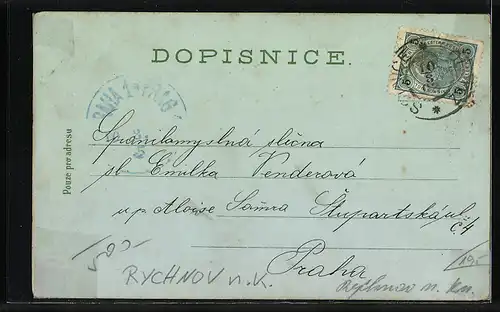 DOPISNICE.
PRAHA 1 PRAG
Pouze pro adresu
Spanilamyslná slečna
sl. Emilka Venderová
u p. Aloise Šamra Štupartská ul.
č 4
Praha
500-
RYCHNOV n. K.
Rychnov n. Kn.
195